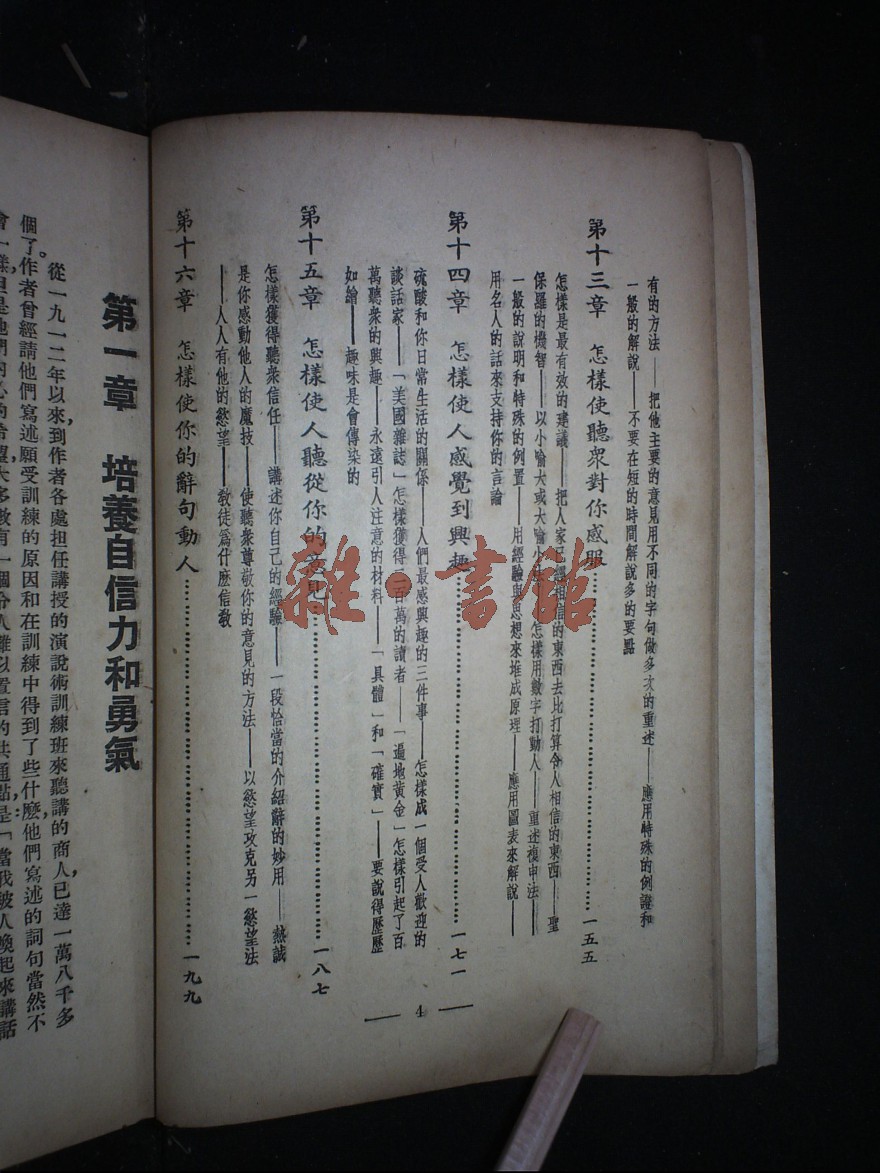 有的方法——把他主要的意見用不同的字句做多次的重述——應用特殊的例證和
一般的解說——不要在短的時間解說多的要點
第十三章　怎樣使聽衆對你感服…………一五五
怎樣是最有效的建議——把人家已經相信的東西去比打算令人相信的東西——聖
保羅的機智——以小喻大或大喻小　怎樣用數字打動人——重述複申法——
一般的說明和特殊的例置——用經驗與思想來堆成原理——應用圖表來解說——
用名人的話來支持你的言論
第十四章　怎樣使人感覺到興趣…………一七一
硫酸和你日常生活的關係——人們最感興趣的三件事——怎樣成一個受人歡迎的
談話家——「美國雜誌」怎樣獲得二百萬的讀者——「遍地黃金」怎樣引起了百
萬聽衆的興趣——永遠引人注意的材料——「具體」和「確實」——要說得歷歷
如繪——趣味是會傳染的
第十五章　怎樣使人聽從你的意見…………一八七
怎樣獲得聽衆信任——講述你自己的經驗——一段恰當的介紹辭的妙用——熱誠
是你感動他人的魔技——使聽衆尊敬你的意見的方法——以慾望攻克另一慾望法
——人人有他的慾望——敎徒爲什麽信敎
第十六章　怎樣使你的辭句動人…………一九九
— 4 —
第一章　培養自信力和勇氣
從一九一二年以來，到作者各處担任講授的演說術訓練班來聽講的商人，已達一萬八千多
個了。作者曾經請他們寫述願受訓練的原因和在訓練中得到了些什麽，他們寫述的詞句當然不
會一樣，但是他們內心的希望大多數有一個令人難以置信的共通點是：「當我被人喚起來講話
雜·書館